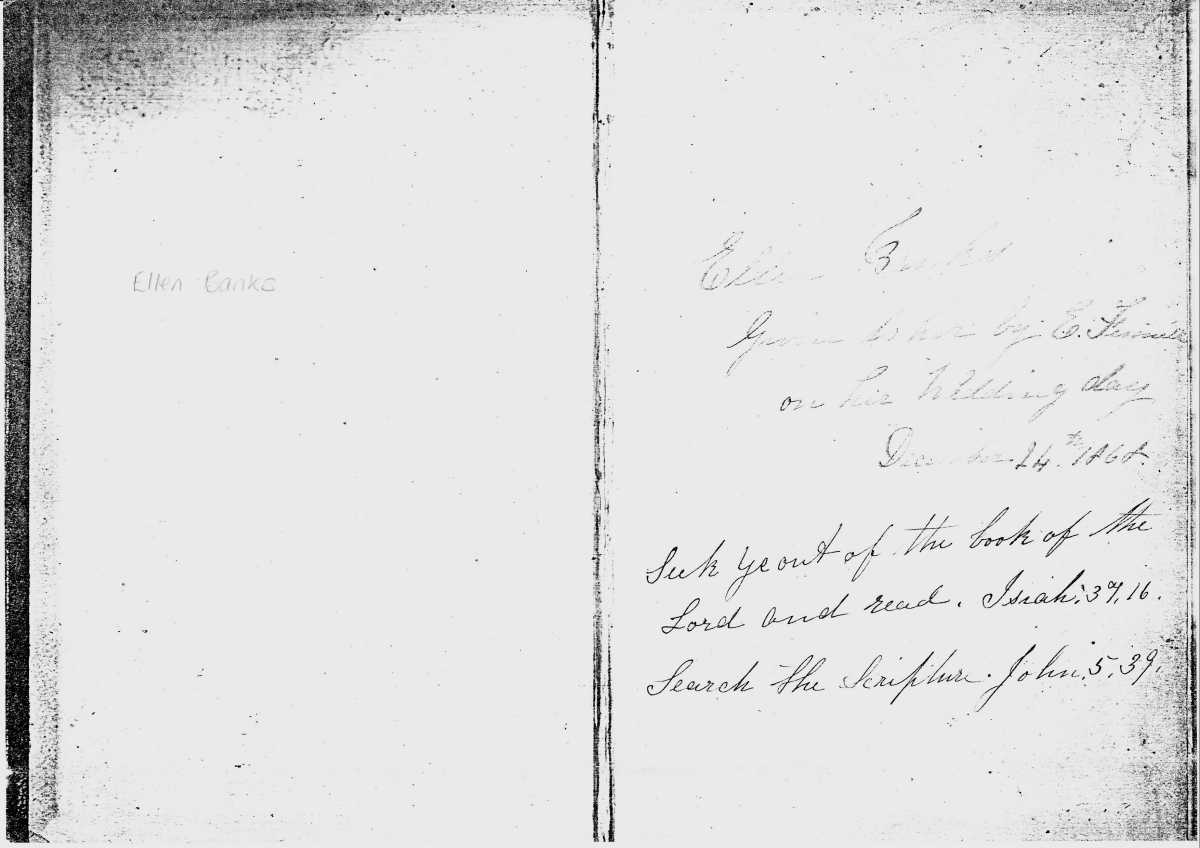 Ellen Banks
Ellen Banks
Given to her by E.
on her Wedding day
December 24th 1868.
Seek ye out of the book of the
Lord and read. Isiah: 34, 16.
Search the Scripture. John. 5, 39.